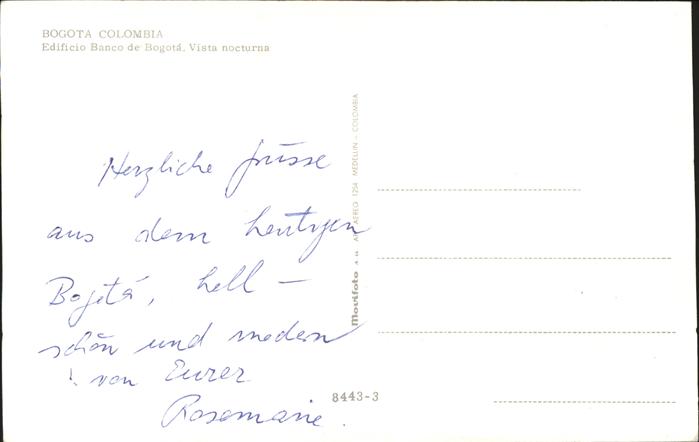 BOGOTA COLOMBIA
Edificio Banco de Bogotá, Vista nocturna
Herzliche Grüsse
aus dem heutigen
Bogotá, hell –
schön und modern
! von Eurer
Rosemarie.
Movifoto s.a. APT. AEREO 1254 MEDELLIN - COLOMBIA
8443-3